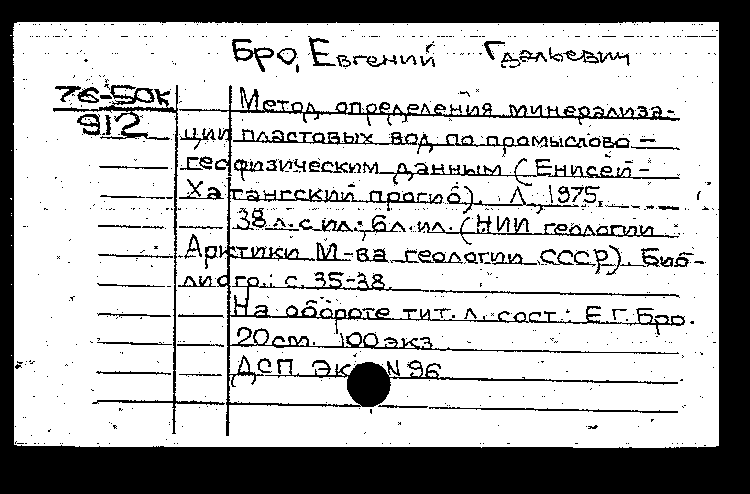 Бро, Евгений Гдальевич
76-50к
912
Метод определения минерализа-
ции пластовых вод по промыслово-
геофизическим данным (Енисей-
Хатангский прогиб). Л., 1975.
38 л. с ил.; 6 л. ил. (НИИ геологии
Арктики М-ва геологии СССР). Биб-
лиогр.: с. 35-38.
На обороте тит. л. сост.: Е.Г. Бро.
20 см. 100 экз.
ДСП Экз N 96